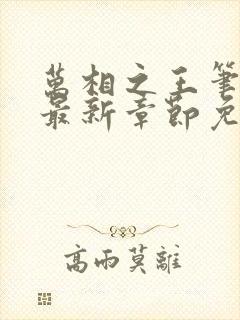 萬相之王筆
最新章節免
高雨莫離